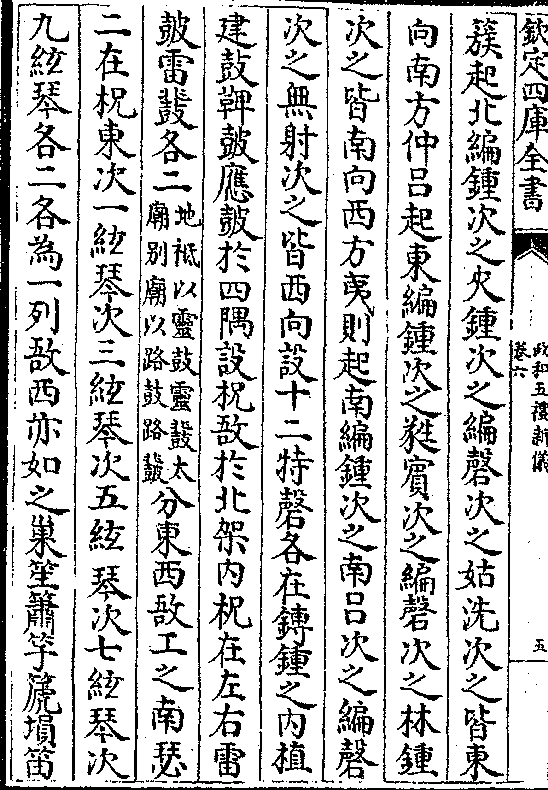 欽定四庫全書
政和五禮新儀
卷六
五
簇起北編鍾次之夾鍾次之編磬次之姑洗次之皆東
向南方仲呂起東編鍾次之蕤賓次之編磬次之林鍾
次之皆南向西方夷則起南編鍾次之南呂次之編磬
次之無射次之皆西向設十二特磬各在鎛鍾之内植
建鼓鞞鼓應鼓於四隅設柷敔於北架内柷在左右雷
鼓雷鼗各二地祗以靈鼓靈鼗太廟别廟以路鼓路鼗分東西敔工之南瑟
二在柷東次一絃琴次三絃琴次五絃琴次七絃琴次
九絃琴各二各為一列敔西亦如之巢笙簫竽篪塤笛